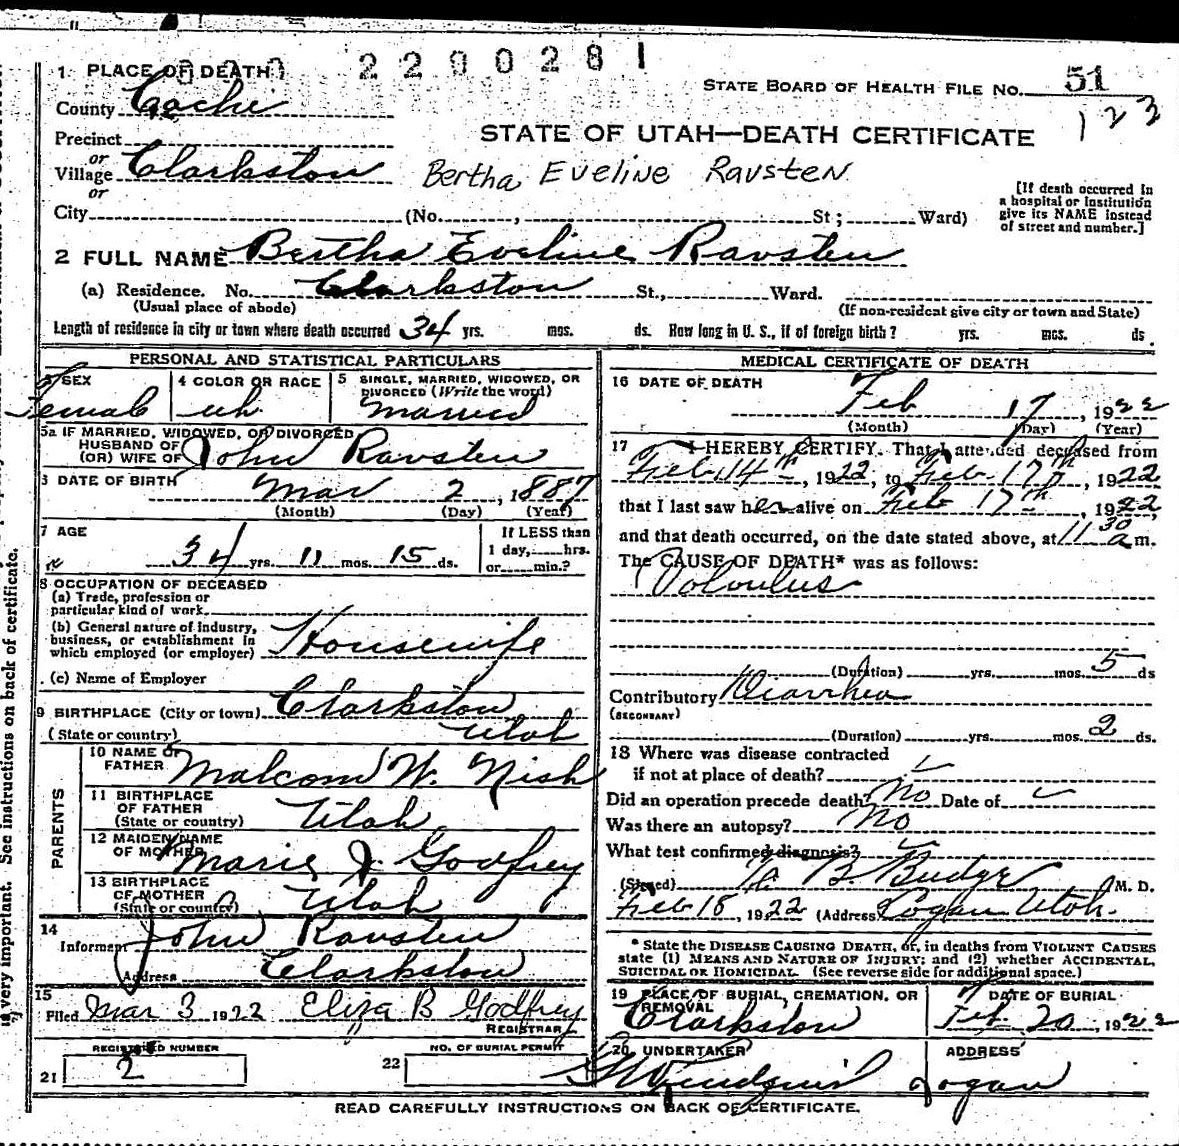 2290281
1 PLACE OF DEATH
STATE BOARD OF HEALTH FILE No. 51
County Cache
123
STATE OF UTAH—DEATH CERTIFICATE
Precinct
or
Village Clarkston
Bertha Eveline Ravsten
or
[If death occurred in a hospital or institution give its NAME instead of street and number.]
City (No. , St ; Ward)
2 FULL NAME Bertha Eveline Ravsten
(a) Residence. No. Clarkston St., Ward.
(Usual place of abode) (If non-resident give city or town and State)
Length of residence in city or town where death occurred 34 yrs. mos. ds. How long in U. S., if of foreign birth? yrs. mos. ds.
PERSONAL AND STATISTICAL PARTICULARS
3 SEX
Female
4 COLOR OR RACE
wh
5 SINGLE, MARRIED, WIDOWED, OR
DIVORCED (Write the word)
Married
5a IF MARRIED, WIDOWED, OR DIVORCED
HUSBAND OF
(OR) WIFE OF John Ravsten
6 DATE OF BIRTH Mar 2, 1887
(Month) (Day) (Year)
7 AGE
34 yrs. 11 mos. 15 ds.
If LESS than
1 day, hrs.
or min.?
8 OCCUPATION OF DECEASED
(a) Trade, profession or
particular kind of work
(b) General nature of industry,
business, or establishment in
which employed (or employer) Housewife
(c) Name of Employer
9 BIRTHPLACE (City or town) Clarkston
(State or country) Utah
PARENTS
10 NAME OF
FATHER Malcom W. Nish
11 BIRTHPLACE
OF FATHER
(State or country) Utah
12 MAIDEN NAME
OF MOTHER Marie J. Godfrey
13 BIRTHPLACE
OF MOTHER
(State or country) Utah
14
Informant John Ravsten
Address Clarkston
15
Filed Mar 3 1922 Eliza B Godfrey
REGISTRAR
REGISTERED NUMBER
21 2
NO. OF BURIAL PERMIT
22
MEDICAL CERTIFICATE OF DEATH
16 DATE OF DEATH
Feb 17, 1922
(Month) (Day) (Year)
17 I HEREBY CERTIFY. That I attended deceased from
Feb 14th, 1922, to Feb 17th, 1922
that I last saw her alive on Feb 17th, 1922,
and that death occurred, on the date stated above, at 11 30 a m.
The CAUSE OF DEATH* was as follows:
Volvulus
(Duration) yrs. mos. 5 ds
Contributory Diarrhea
(SECONDARY)
(Duration) yrs. mos. 2 ds.
18 Where was disease contracted
if not at place of death?
Did an operation precede death? No Date of
Was there an autopsy? No
What test confirmed diagnosis?
(Signed) B. Budge M. D.
Feb 18, 1922 (Address) Logan Utah.
* State the DISEASE CAUSING DEATH, or, in deaths from VIOLENT CAUSES
state (1) MEANS AND NATURE OF INJURY; and (2) whether ACCIDENTAL,
SUICIDAL OR HOMICIDAL. (See reverse side for additional space.)
19 PLACE OF BURIAL, CREMATION, OR
REMOVAL
Clarkston
DATE OF BURIAL
Feb 20, 1922
20 UNDERTAKER
ADDRESS
Logan
READ CAREFULLY INSTRUCTIONS ON BACK OF CERTIFICATE.
is very important. See instructions on back of certificate.